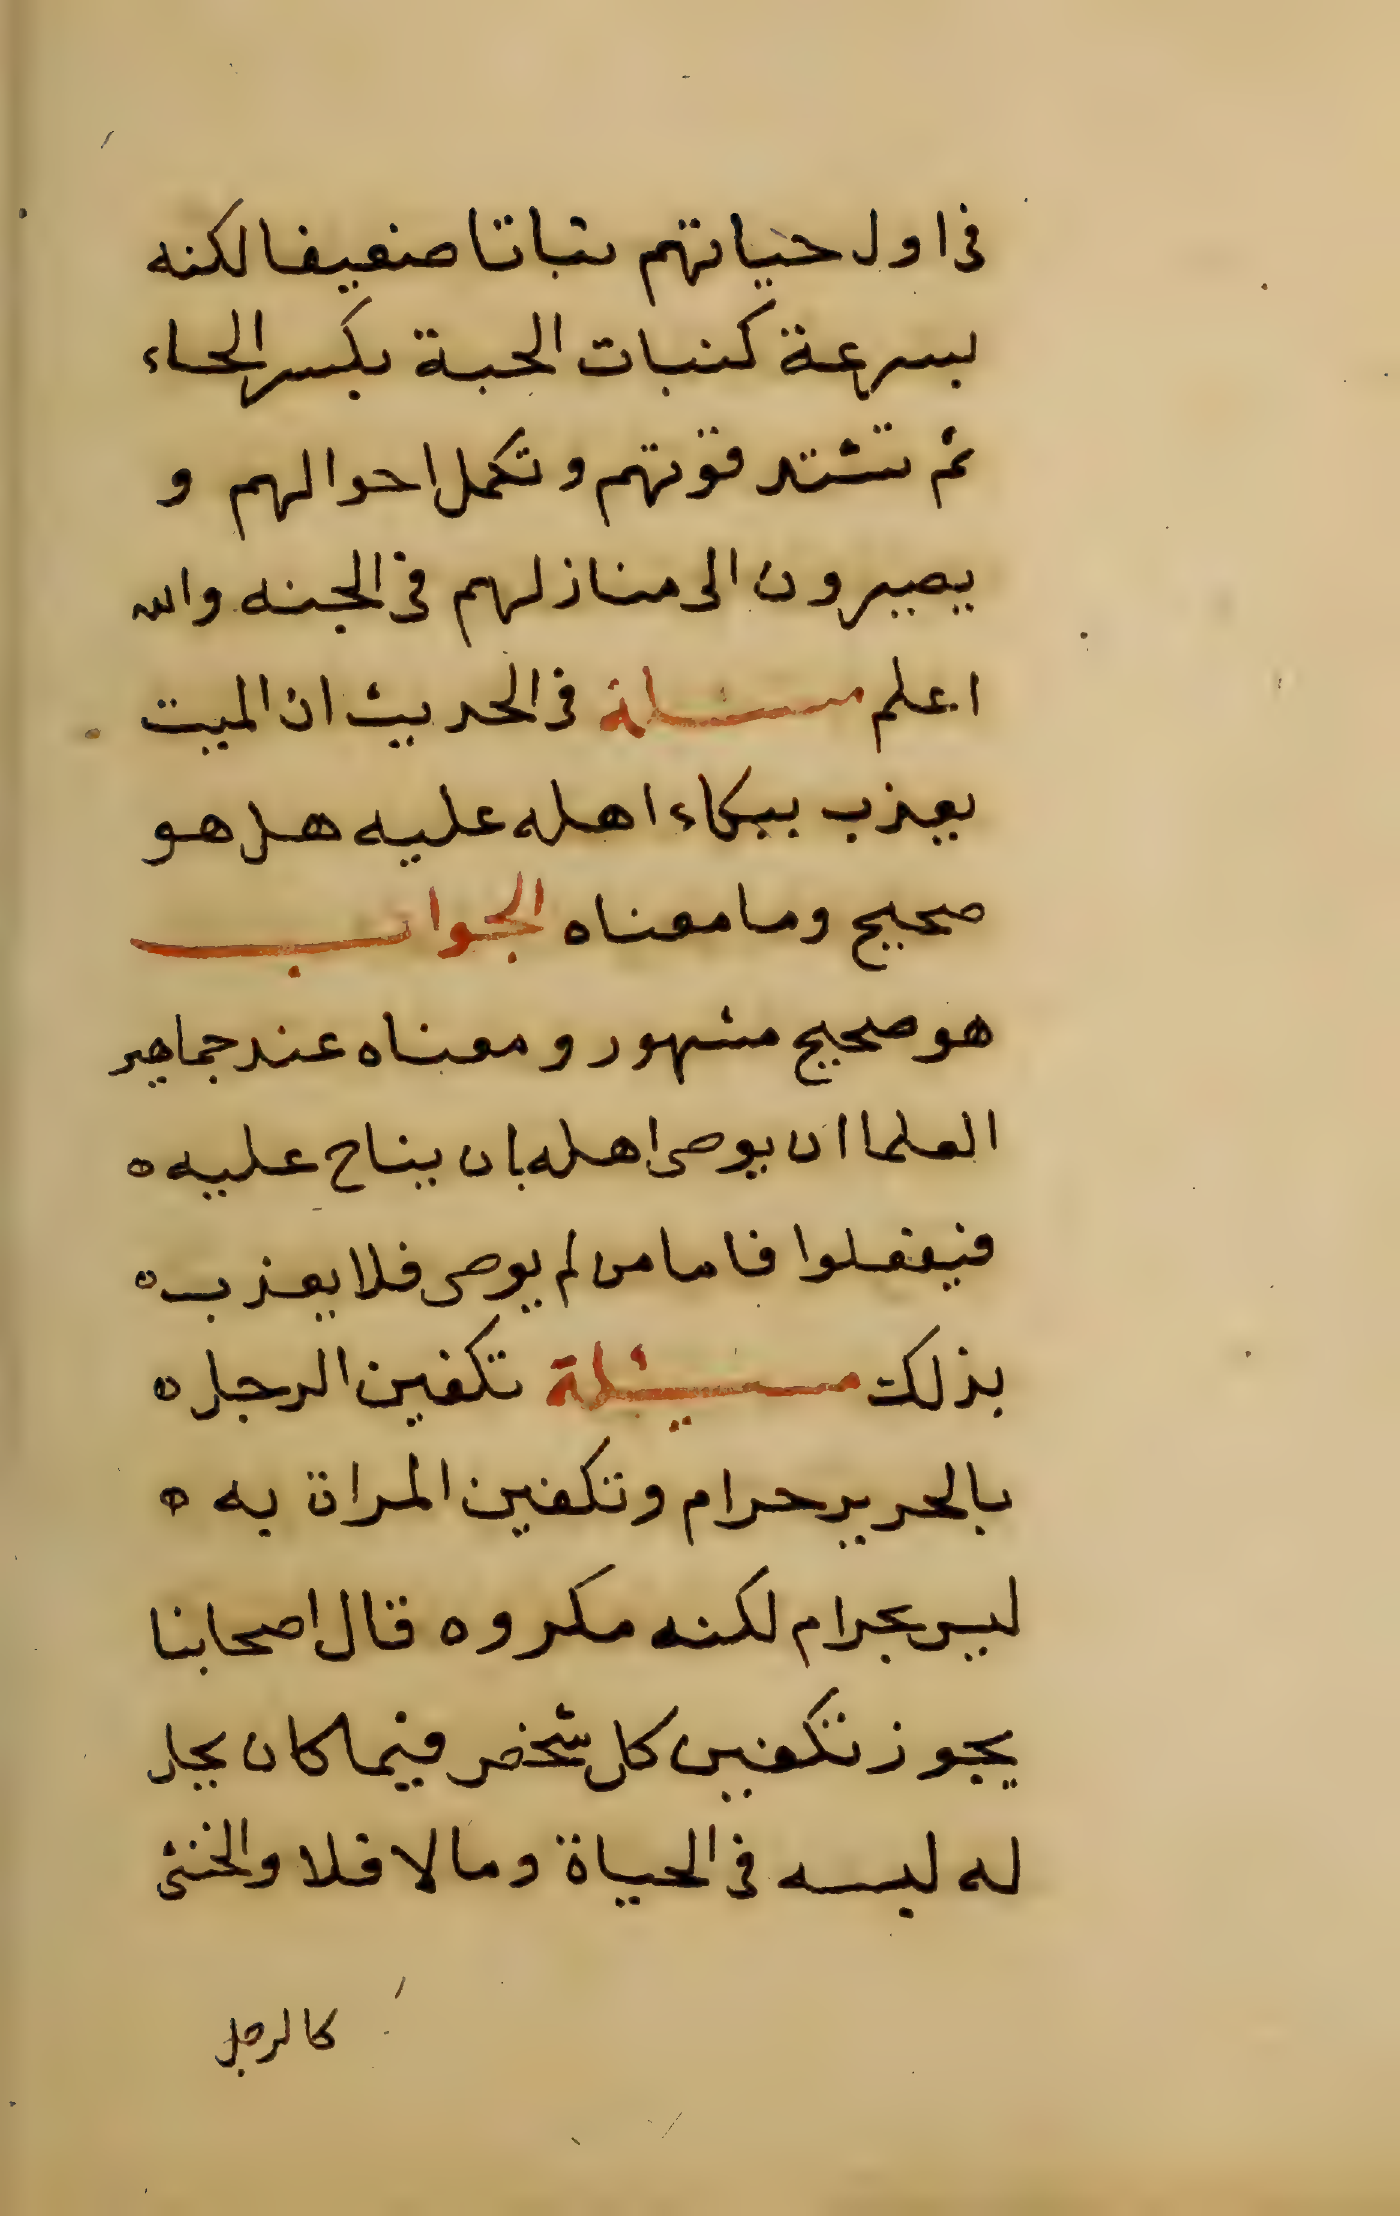 فى اول حياتهم نباتا ضعيفا لكنه
بسرعة كنبات الحبة بكسر الحاء
ثم تشتد قوتهم و تكمل احوالهم و
يصيرون الى منازلهم فى الجنه والله
اعلم مسئلة فى الحديث ان الميت
يعذب ببكاء اهله عليه هل هو
صحيح وما معناه الجواب
هو صحيح مشهور و معناه عند جماهير
العلما ان يوصى اهله بان يناح عليه ه
فيفعلوا فاما من لم يوصى فلا يعذب ه
بذلك مسيئلة تكفين الرجل ه
بالحرير حرام و تكفين المراة به ه
ليس بحرام لكنه مكروه قال اصحابنا
يجوز تكفين كل شخص فيما كان يحل
له لبسه فى الحياة وما لا فلا والخنثى
كالرجل